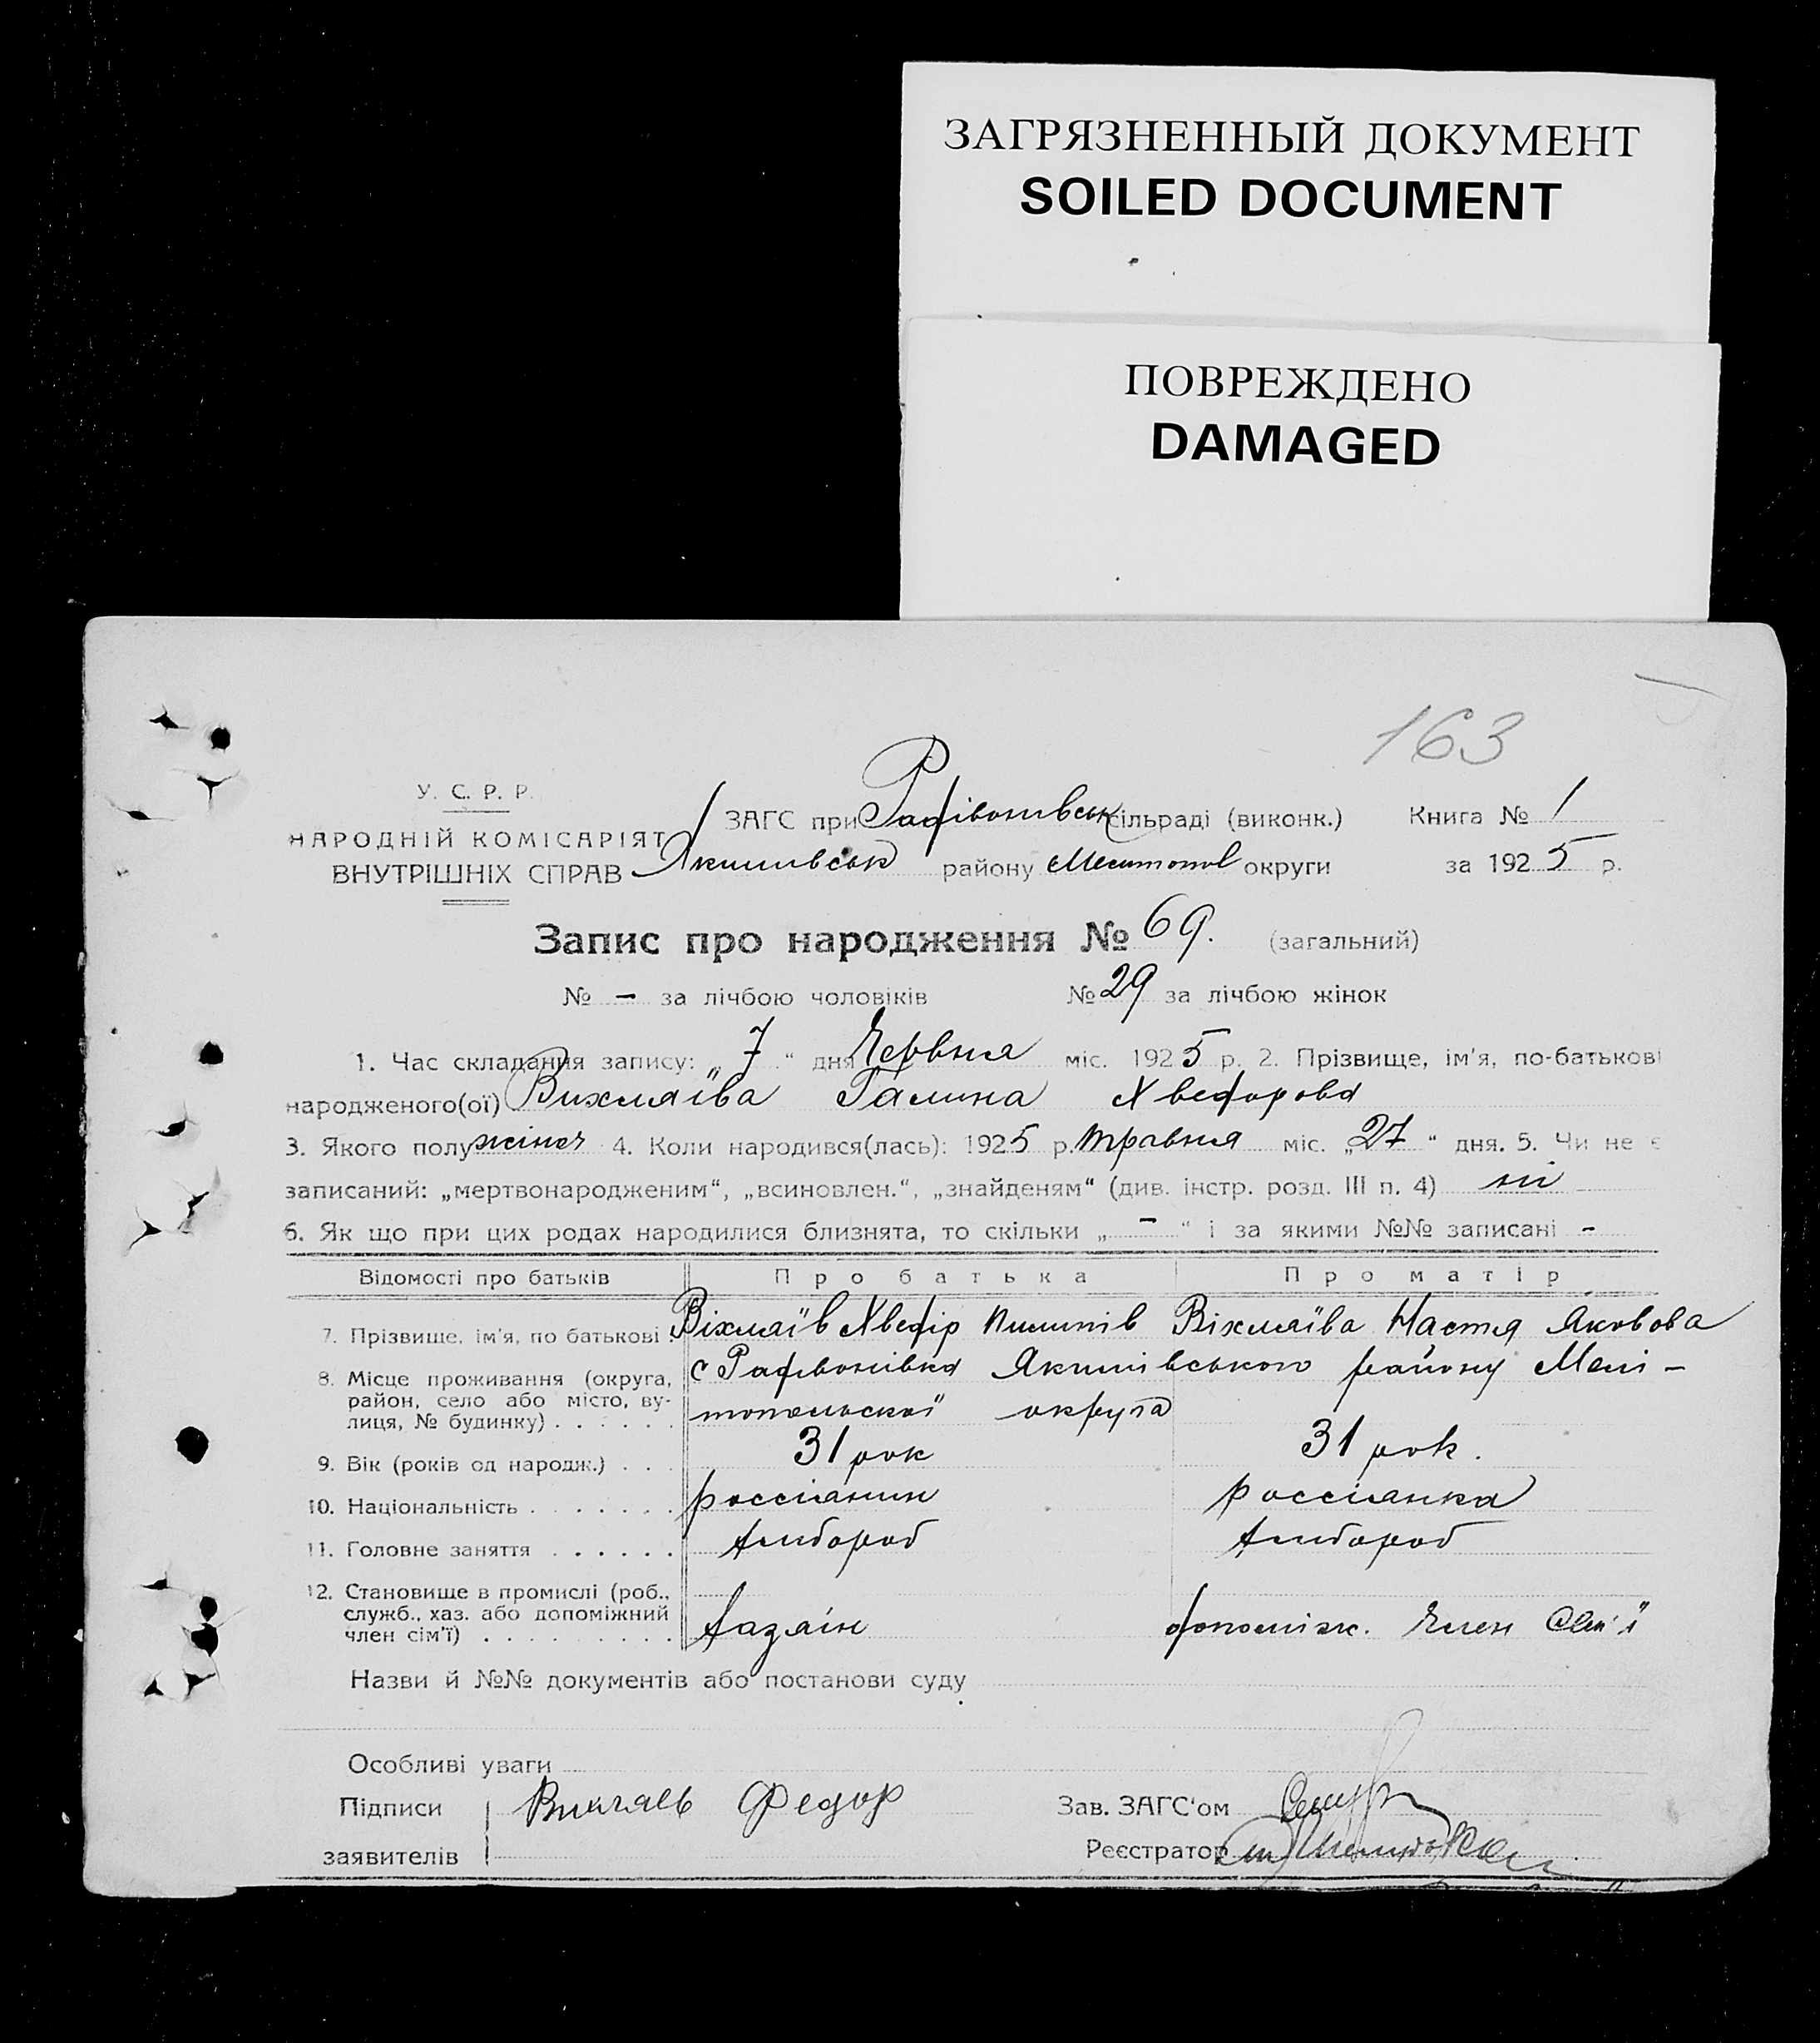 ЗАГРЯЗНЕННЫЙ ДОКУМЕНТ
SOILED DOCUMENT
ПОВРЕЖДЕНО
DAMAGED
163
У. С. Р. Р.
НАРОДНІЙ КОМІСАРІЯТ
ВНУТРІШНІХ СПРАВ
ЗАГС при сільраді (виконк.) Книга № 1
Якимівськ району Мелитопол округи за 1925 р.
Запис про народження № 69. (загальний)
№ - за лічбою чоловіків № 29 за лічбою жінок
1. Час складання запису: „7“ дня Червня міс. 1925 р. 2. Прізвище, ім'я, по-батькові
народженого(ої) Вихляїва Галина Хведорова
3. Якого полу жіноч 4. Коли народився(лась): 1925 р. травня міс. „27“ дня. 5. Чи не є
записаний: „мертвонародженим“, „всиновлен.“, „знайденям“ (див. інстр. розд. III п. 4) ні
6. Як що при цих родах народилися близнята, то скільки „-“ і за якими №№ записані -
Відомості про батьків Про батька Про матір
7. Прізвище, ім'я, по батькові Віхляїв Хведір Пилипів Віхляїва Настя Яковова
8. Місце проживання (округа, район, село або місто, вулиця, № будинку) с Якимівського району Мелі-
топольської округа
9. Вік (років од народж.) 31 рок 31 рок.
10. Національність россіянин россіянка
11. Головне заняття хлібороб хлібороб
12. Становище в промислі (роб., служб., хаз. або допоміжний член сім'ї) хазяін допоміж. член сем'ї
Назви й №№ документів або постанови суду
Особливі уваги
Підписи Вихляев Федор Зав. ЗАГС'ом
заявителів Реєстратор